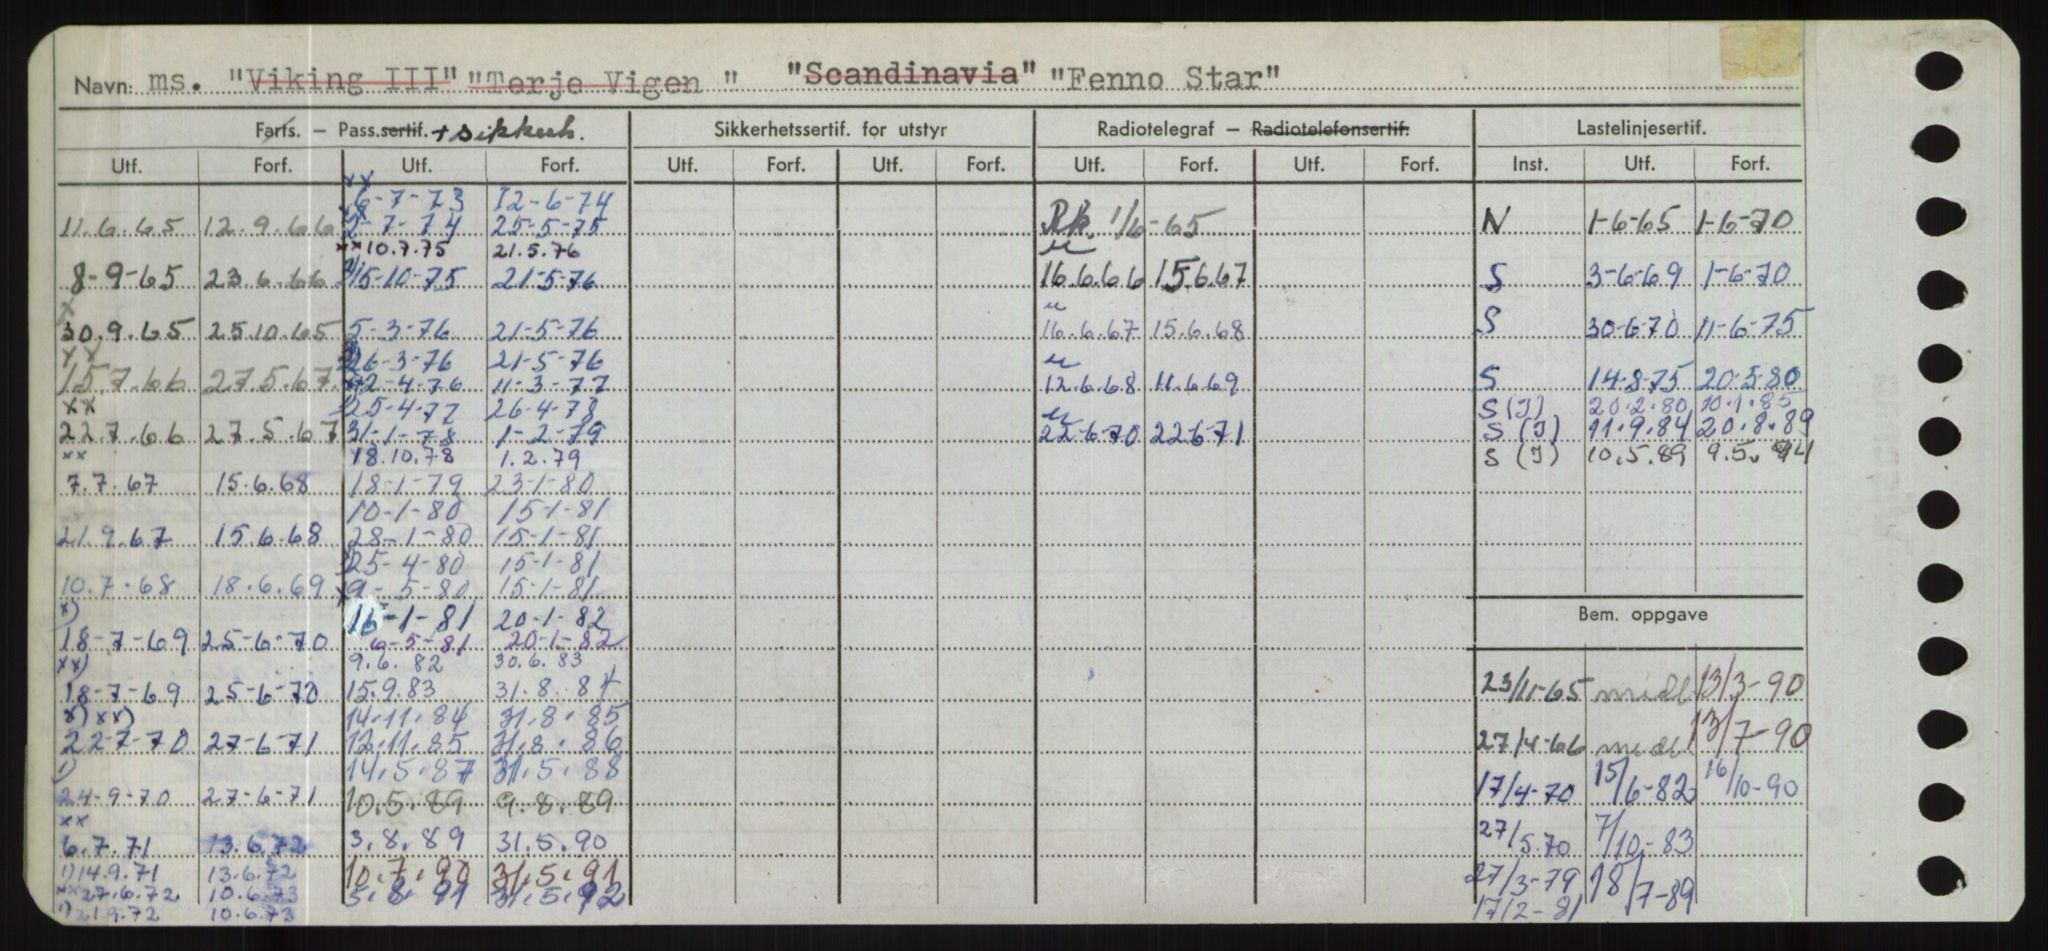 Navn: ms. "Viking III" "Terje Vigen " "Scandinavia" "Fenno Star"
Farts. – Pass.sertif. + sikkerh. Sikkerhetssertif. for utstyr Radiotelegraf – Radiotelefonsertif. Lastelinjesertif.
Utf. Forf. Utf. Forf. Utf. Forf. Utf. Forf. Utf. Forf. Utf. Forf. Inst. Utf. Forf.
xx 6-7-73 12-6-74
11.6.65 12.9.66 xx 2-7-74 25-5-75 Rk. 1/6-65 N 1-6-65 1-6-70
xx 10.7.75 21.5.76
8-9-65 23.6.66 15-10-75 21-5-76 u 16.6.66 15.6.67 S 3-6-69 1-6-70
x 30.9.65 25.10.65 5-3-76 21-5-76 u 16.6.67 15.6.68 S 30-6-70 11-6-75
26-3-76 21-5-76
xx 15.7.66 27.5.67 2-4-76 11-3-77 u 12.6.68 11.6.69 S 14-8-75 20-5-80
25-4-77 26-4-78 S (I) 20.2.80 10.1.85
xx 22.7.66 27.5.67 31-1-78 1-2-79 u 22-6-70 22671 S (I) 11.9.84 20.8.89
18.10.78 1.2.79 S (I) 10.5.89 9.5.94
xx 7.7.67 15.6.68 18-1-79 23-1-80
10-1-80 15-1-81
21.9.67 15.6.68 28-1-80 15-1-81
25-4-80 15-1-81
10.7.68 18.6.69 9-5-80 15-1-81
x) 16-1-81 20-1-82 Bem. oppgave
18-7-69 25-6-70 6-5-81 20-1-82
xx) 9.6.82 30.6.83
18-7-69 25-6-70 15.9.83 31.8.84 23/11-65 medl 13/3-90
x) xx) 14.11.84 31.8.85
22-7-70 27-6-71 12.11.85 31.8.86 27/4-66 medl 13/7-90
1) 14.5.87 31.5.88
24-9-70 27-6-71 10.5.89 9.8.89 17/4-70 15/6-82 16/10-90
xx 6.7.71 13.6.72 3.8.89 31.5.90 27/5.70 7/10-83
1) 14.9.71 13.6.72 10.7.90 31.5.91 27/3-79 18/7-89
xx 27.6.72 10.6.73 5.8.91 31.5.92
1) 21.9.72 10.6.73 17/2-81